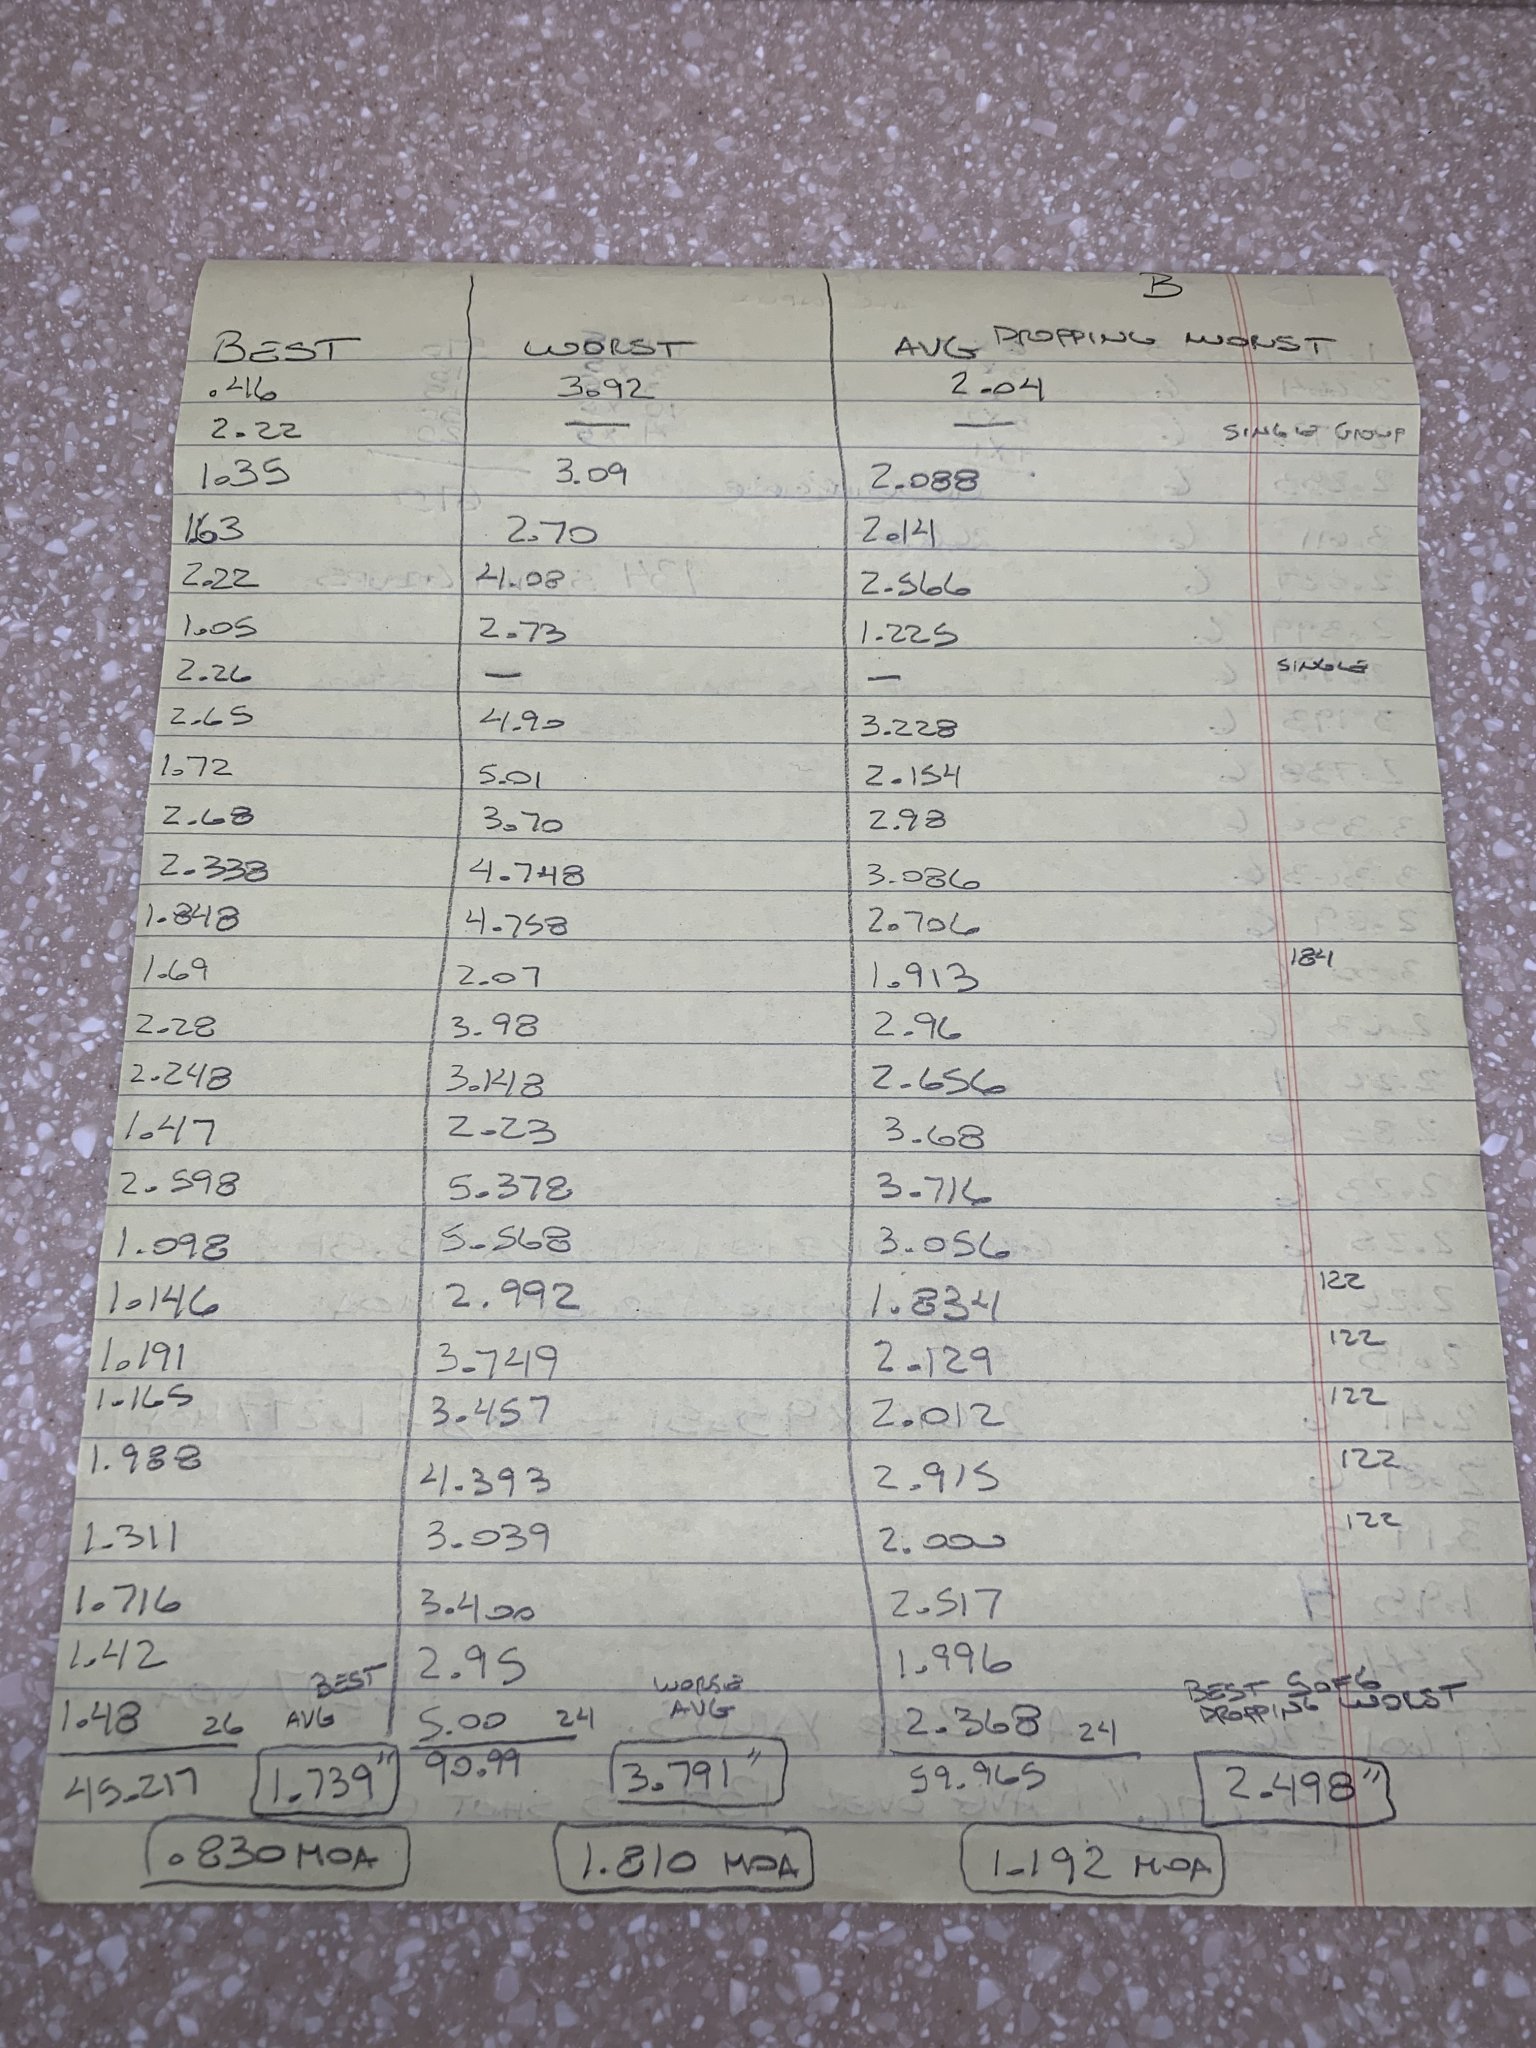 B
BEST WORST AVG DROPPING WORST
.46 3.92 2.04
2.22 — — SINGLE GROUP
1.35 3.09 2.088
1.63 2.70 2.14
2.22 4.08 2.566
1.05 2.73 1.225
2.26 — — SINGLE
2.65 4.90 3.228
1.72 5.01 2.154
2.68 3.70 2.98
2.338 4.748 3.086
1.848 4.758 2.706
1.69 2.07 1.913 184
2.28 3.98 2.96
2.248 3.148 2.656
1.47 2.23 3.68
2.598 5.378 3.716
1.098 5.568 3.056
1.146 2.992 1.834 122
1.191 3.749 2.129 122
1.165 3.457 2.012 122
1.988 4.393 2.915 122
1.311 3.039 2.000 122
1.716 3.400 2.517
1.42 2.95 1.996
1.48 26 BEST AVG 5.00 24 WORSE AVG 2.368 24 BEST 5 OF 6 DROPPING WORST
45.217 1.739" 90.99 3.791" 59.965 2.498"
.830 MOA 1.810 MOA 1.192 MOA